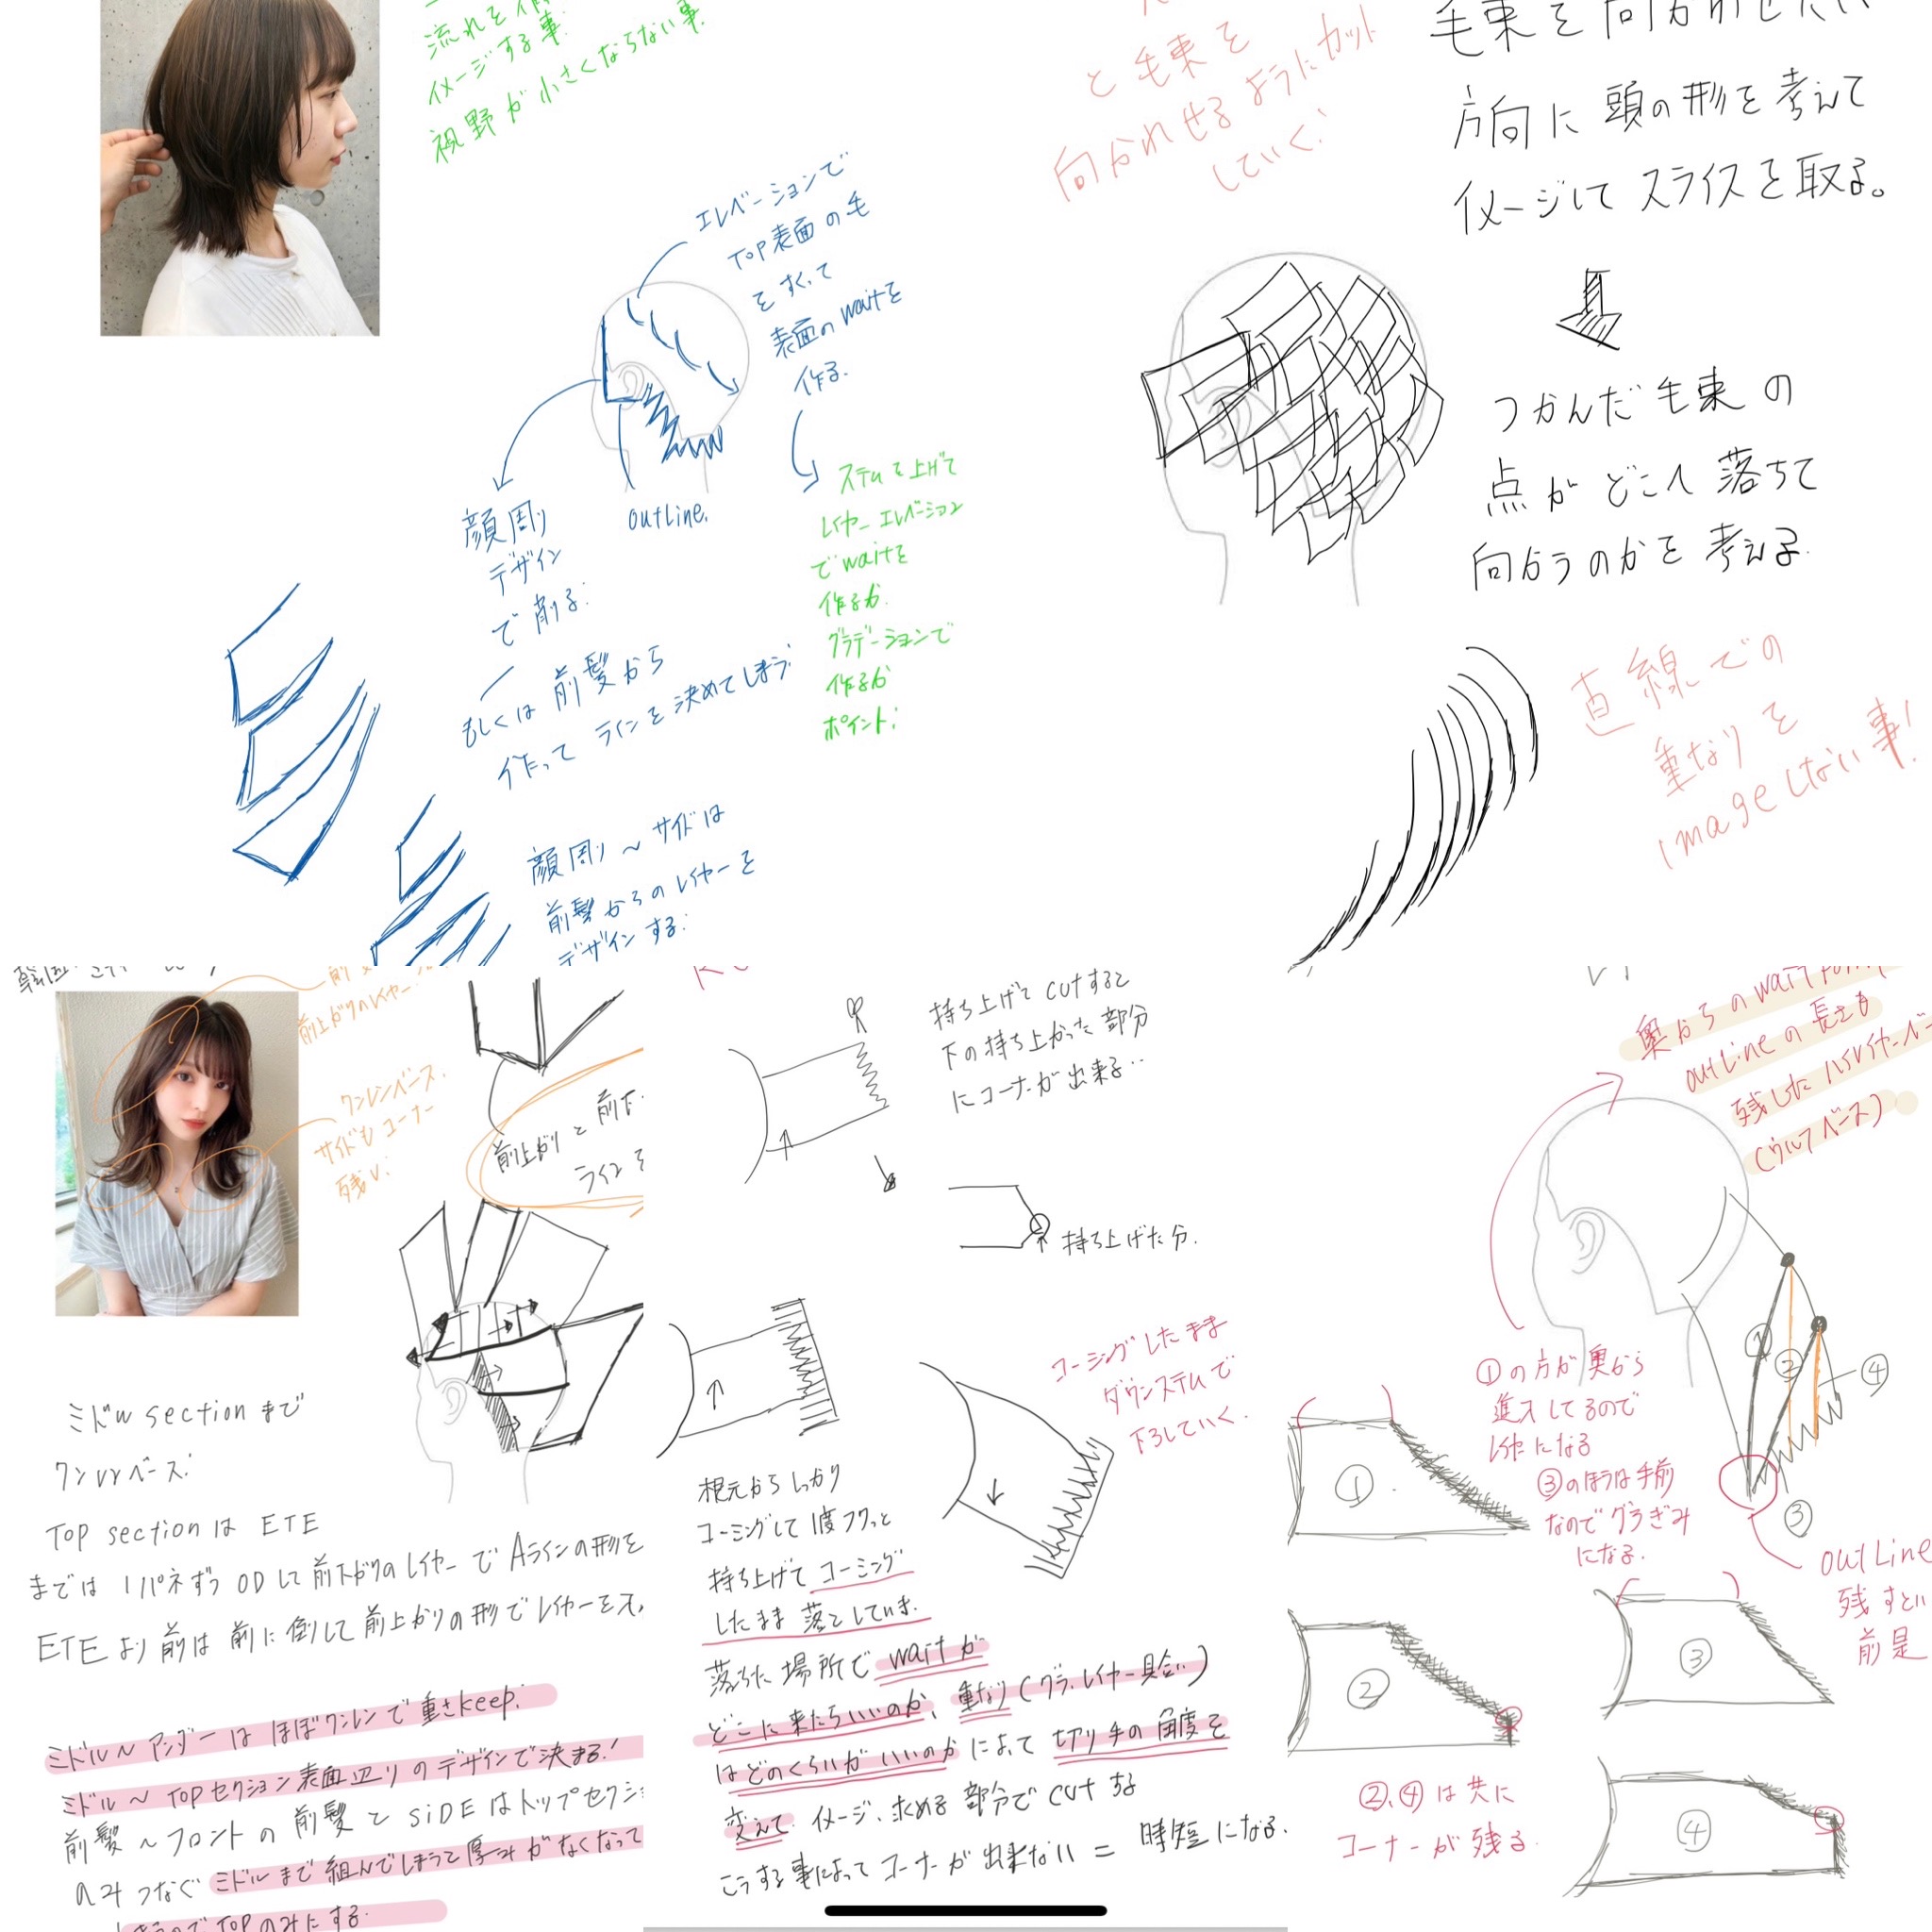 流れを作
イメージする事.
視野が小さくならない事.
エレベーションで
TOP表面の毛
をすくって
表面のwaitを
作る.
顔周り
デザイン
で削る.
outLine.
もしくは前髪から
作ってラインを決めてしまう.
ステムを上げて
レイヤーエレベーション
でwaitを
作るか.
グラデーションで
作るか
ポイント!
顔周り〜サイドは
前髪からのレイヤーを
デザインする.
と毛束を
向かわせるようにカット
していく!
毛束を向かわせたい
方向に頭の形を考えて
イメージしてスライスを取る。
つかんだ毛束の
点がどこへ落ちて
向かうのかを考える.
直線での
重なりを
imageしない事!
前上がりのレイヤー.
ワンレンベース.
サイドもコーナー
残し.
前上がりと前下
ライン
ミドルsectionまで
ワンレンベース.
Top sectionはETE
までは1パネずつODして前下がりのレイヤーでAラインの形を
ETEより前は前に倒して前上がりの形でレイヤーを
ミドル〜アンダーはほぼワンレンで重さkeep.
ミドル〜TOPセクション表面辺りのデザインで決まる!
前髪〜フロントの前髪とSiDEはトップセクシ
のみつなぐ ミドルまで組んでしまうと厚みがなくなって
しまうのでTOPのみにする.
持ち上げてcutすると
下の持ち上がった部分
にコーナーが出来る…
持ち上げた分.
コーミングしたまま
ダウンステムで
下ろしていく.
根元からしっかり
コーミングして1度フワッと
持ち上げてコーミング
したまま落としていき.
落ちた場所でwaitが
どこに来たらいいのか、重なり(グラ、レイヤー具合い)
はどのくらいがいいのかによって切り手の角度を
変えて.イメージ、求める部分でcutする
こうする事によってコーナーが出来ない=時短になる.
奥からのwait point
outLineの長さも
残したハイレイヤーベー
(ウルフベース)
①
②
③
④
①の方が奥から
進入してるので
レイヤーになる
③のほうは手前
なのでグラぎみ
になる.
outLine
残すとい
前是
①
②
③
④
②,④は共に
コーナーが残る.